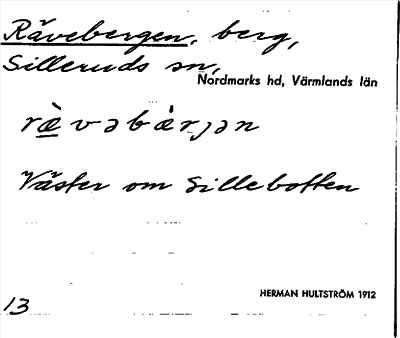 Rävebergen, berg,
Silleruds sn,
Nordmarks hd, Värmlands län
ræ̀vəbær̀jən
Väster om Sillebotten
HERMAN HULTSTRÖM 1912
13